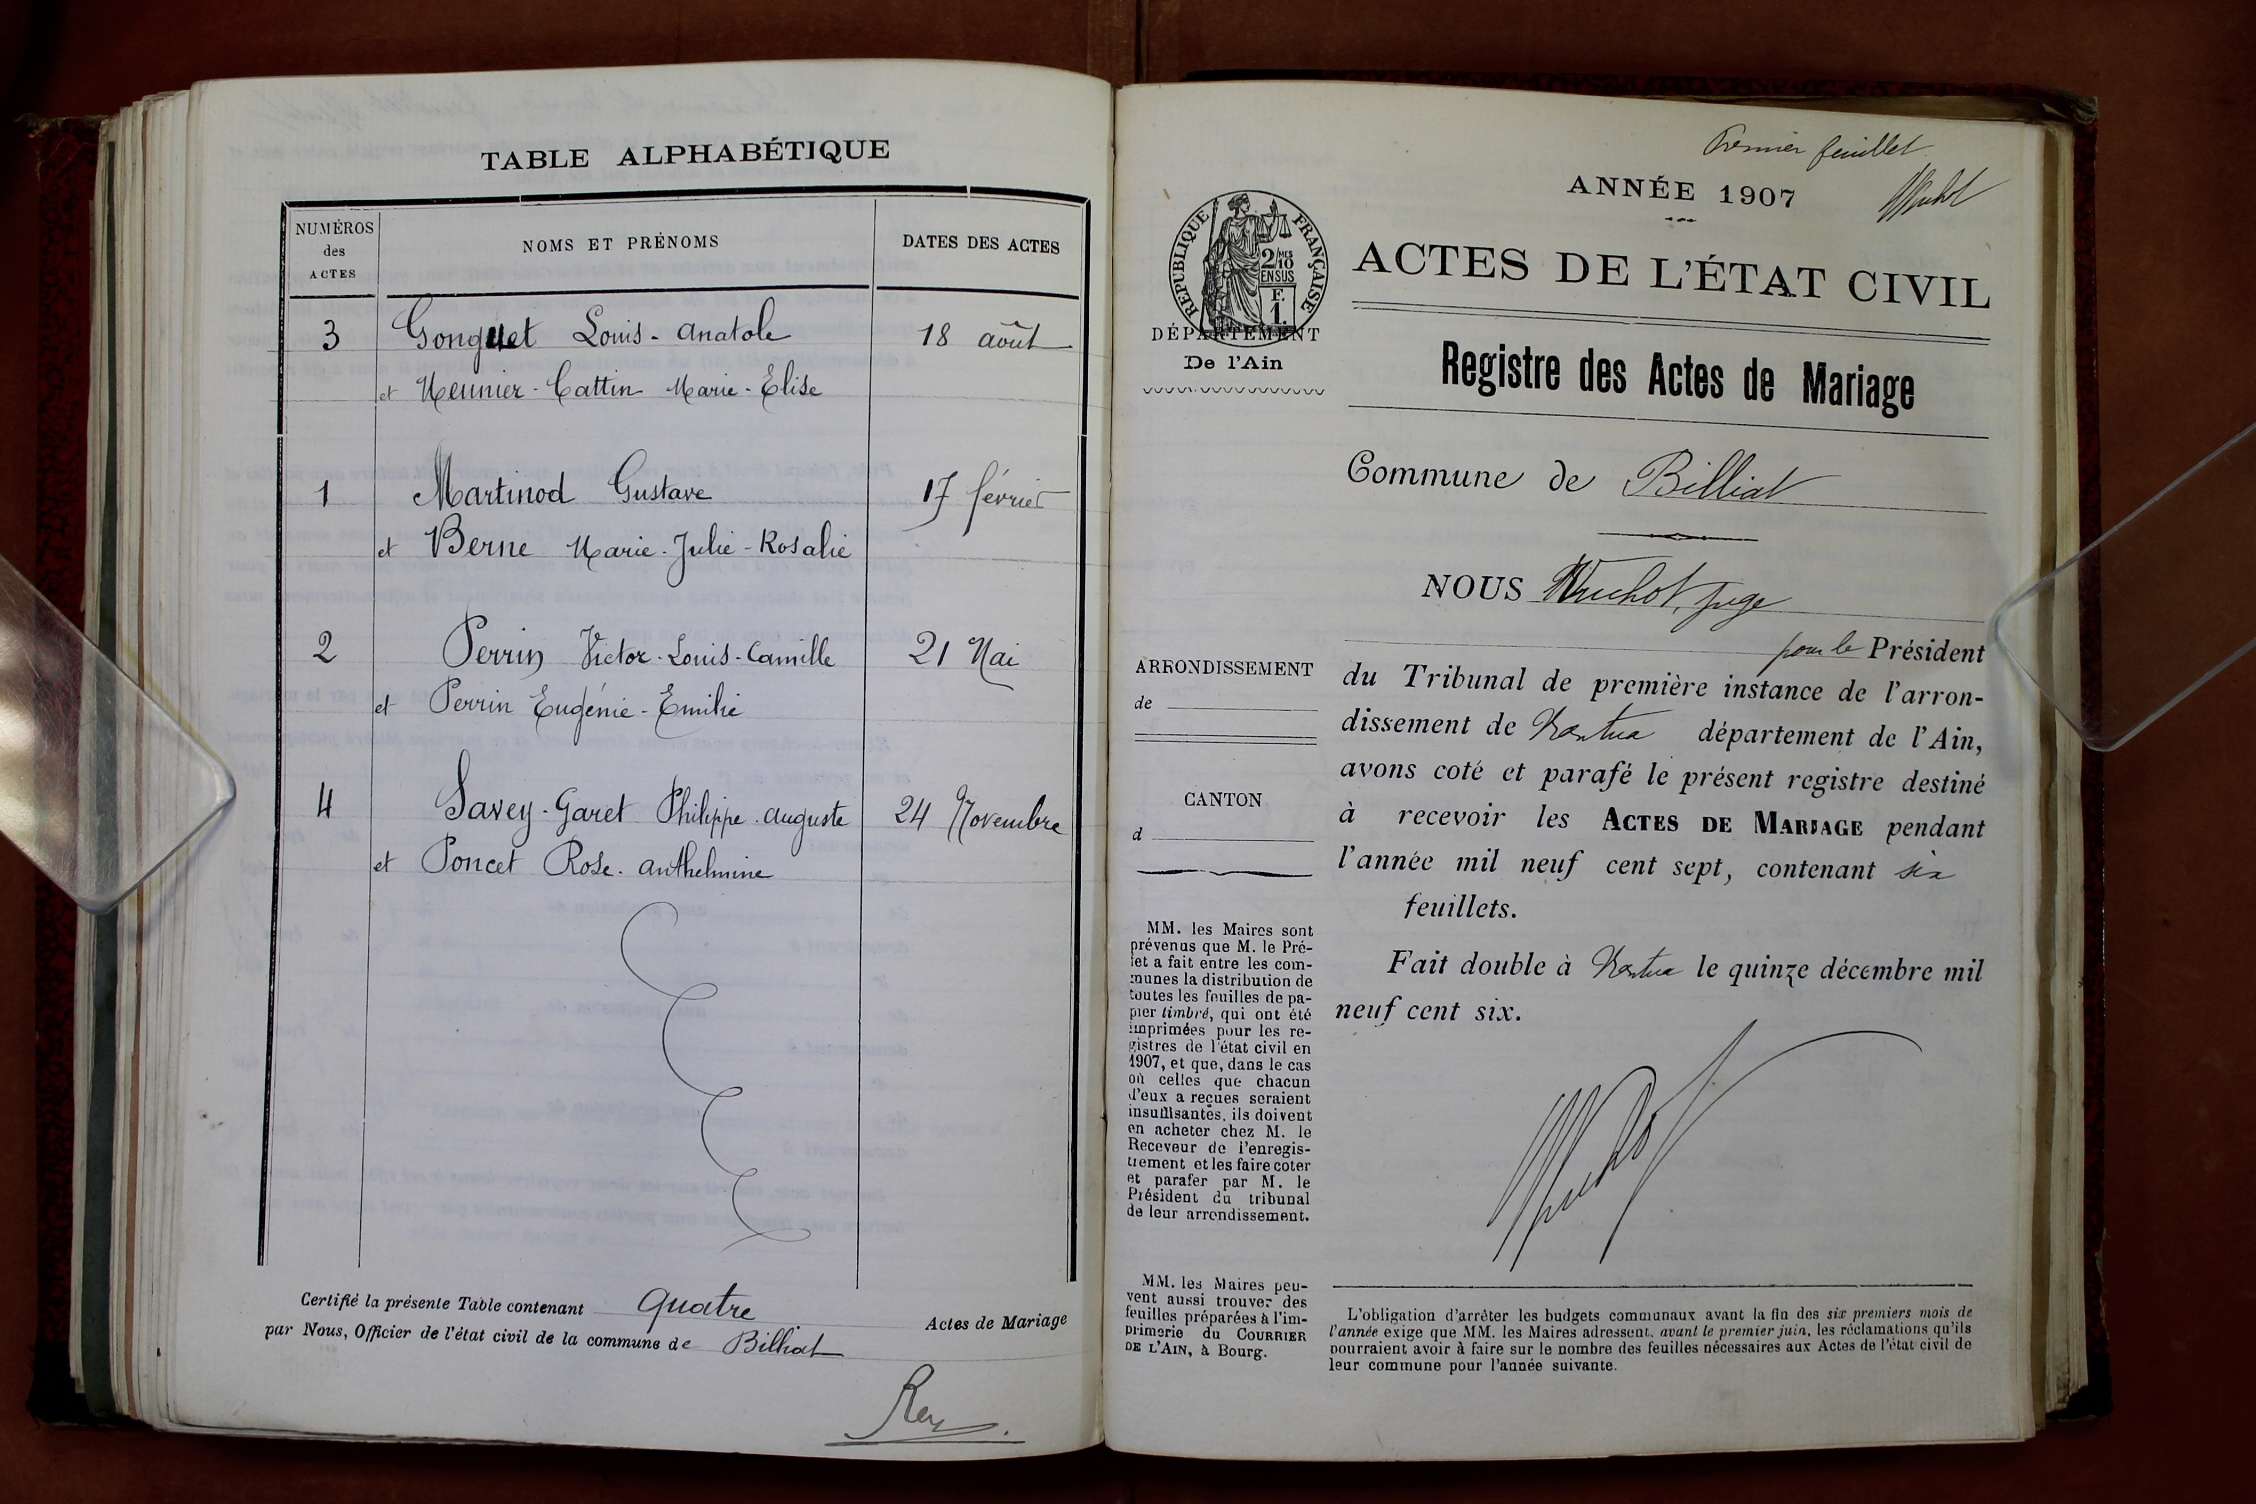 TABLE ALPHABÉTIQUE
NUMÉROS des ACTES
NOMS ET PRÉNOMS
DATES DES ACTES
3 Gonguet Louis-Anatole 18 août
et Meunier-Cattin Marie-Elise
1 Martinod Gustave 17 février
et Berne Marie-Julie-Rosalie
2 Perrin Victor-Louis-Camille 21 Mai
et Perrin Eugénie-Emilie
4 Savey-Garet Philippe-auguste 24 Novembre
et Poncet Rose-anthelmine
Certifié la présente Table contenant quatre Actes de Mariage
par Nous, Officier de l'état civil de la commune de Billiat
Rey
Premier feuillet
ANNÉE 1907
RÉPUBLIQUE FRANÇAISE
2/MES
10
EN SUS
F.
1.
ACTES DE L'ÉTAT CIVIL
DÉPARTEMENT
De l'Ain
Registre des Actes de Mariage
Commune de Billiat
NOUS juge
pour le Président
du Tribunal de première instance de l'arron-
dissement de Nantua département de l'Ain,
avons coté et parafé le présent registre destiné
à recevoir les ACTES DE MARIAGE pendant
l'année mil neuf cent sept, contenant six
feuillets.
Fait double à Nantua le quinze décembre mil
neuf cent six.
ARRONDISSEMENT
de
CANTON
d
MM. les Maires sont
prévenus que M. le Pré-
fet a fait entre les com-
munes la distribution de
toutes les feuilles de pa-
pier timbré, qui ont été
imprimées pour les re-
gistres de l'état civil en
1907, et que, dans le cas
où celles que chacun
d'eux a reçues seraient
insuffisantes, ils doivent
en acheter chez M. le
Receveur de l'enregis-
trement et les faire coter
et parafer par M. le
Président du tribunal
de leur arrondissement.
MM. les Maires peu-
vent aussi trouver des
feuilles préparées à l'im-
primerie du COURRIER
DE L'AIN, à Bourg.
L'obligation d'arrêter les budgets communaux avant la fin des six premiers mois de
l'année exige que MM. les Maires adressent, avant le premier juin, les réclamations qu'ils
pourraient avoir à faire sur le nombre des feuilles nécessaires aux Actes de l'état civil de
leur commune pour l'année suivante.